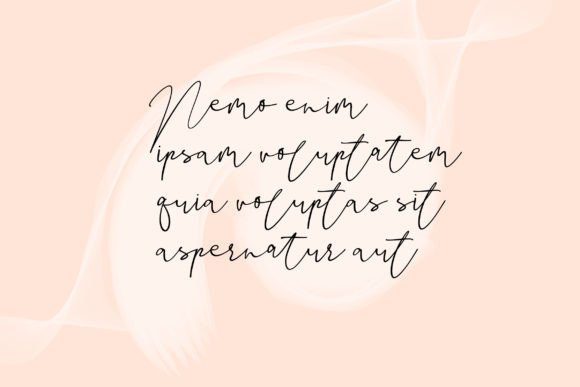 Nemo enim
ipsam voluptatem
quia voluptas sit
aspernatur aut